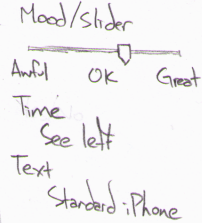 Mood/Slider
Awful OK Great
Time
See left
Text
Standard iPhone